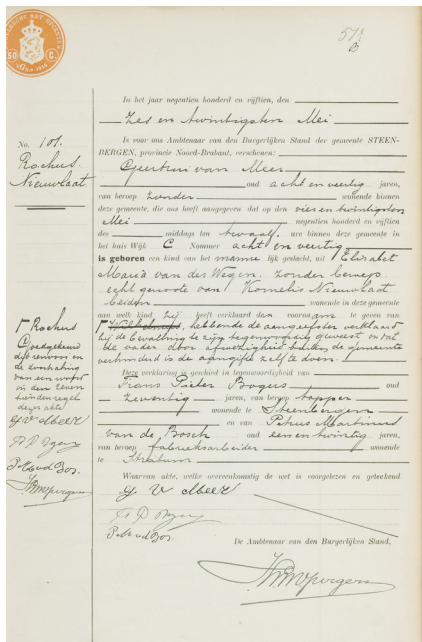 50 C.
51
B
In het jaar negentien honderd en vijftien, den
Zes en twintigsten Mei
is voor ons Ambtenaar van den Burgerlijken Stand der gemeente STEEN-
BERGEN, provincie Noord-Brabant, verschenen:
No. 101.
Rochus
Nieuwlaat
Geertrui van Meer
oud acht en veertig jaren,
van beroep zonder wonende binnen
deze gemeente, die ons heeft aangegeven dat op den vier en twintigsten
Mei negentien honderd en vijftien
des middags ten twaalf ure binnen deze gemeente in
het huis Wijk C Nommer acht en veertig
is geboren een kind van het mannelijk geslacht, uit Elisabet
Maria van der Weven, zonder beroep
echtgenoote van Kornelis Nieuwlaat
beiden wonende in deze gemeente
aan welk kind zij heeft verklaard den voornaam te geven van
hebbende de aangeefster verklaard
bij de bevalling te zijn tegenwoordig geweest en dat
de vader door afwezigheid buiten de gemeente
verhinderd is de aangifte zelf te doen.
Deze verklaring is geschied in tegenwoordigheid van
Frans Pieter Bogers oud
zeventig jaren, van beroep stopper
wonende te Steenbergen
en van Petrus Martinus
van de Bosch oud een en twintig jaren,
van beroep fabrieksarbeider wonende
te Stratum
Waarvan akte, welke overeenkomstig de wet is voorgelezen en geteekend
G V Meer
De Ambtenaar van den Burgerlijken Stand,
Rochus
Goedgekeurd
de renvooi en
de doorhaling
van een woord
in den zeven
tienden regel
dezer akte
G V Meer